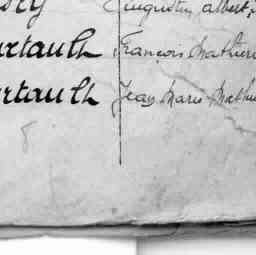 Augustin Albert,
urtault François Mathurin
urtault Jean Marie Mathu